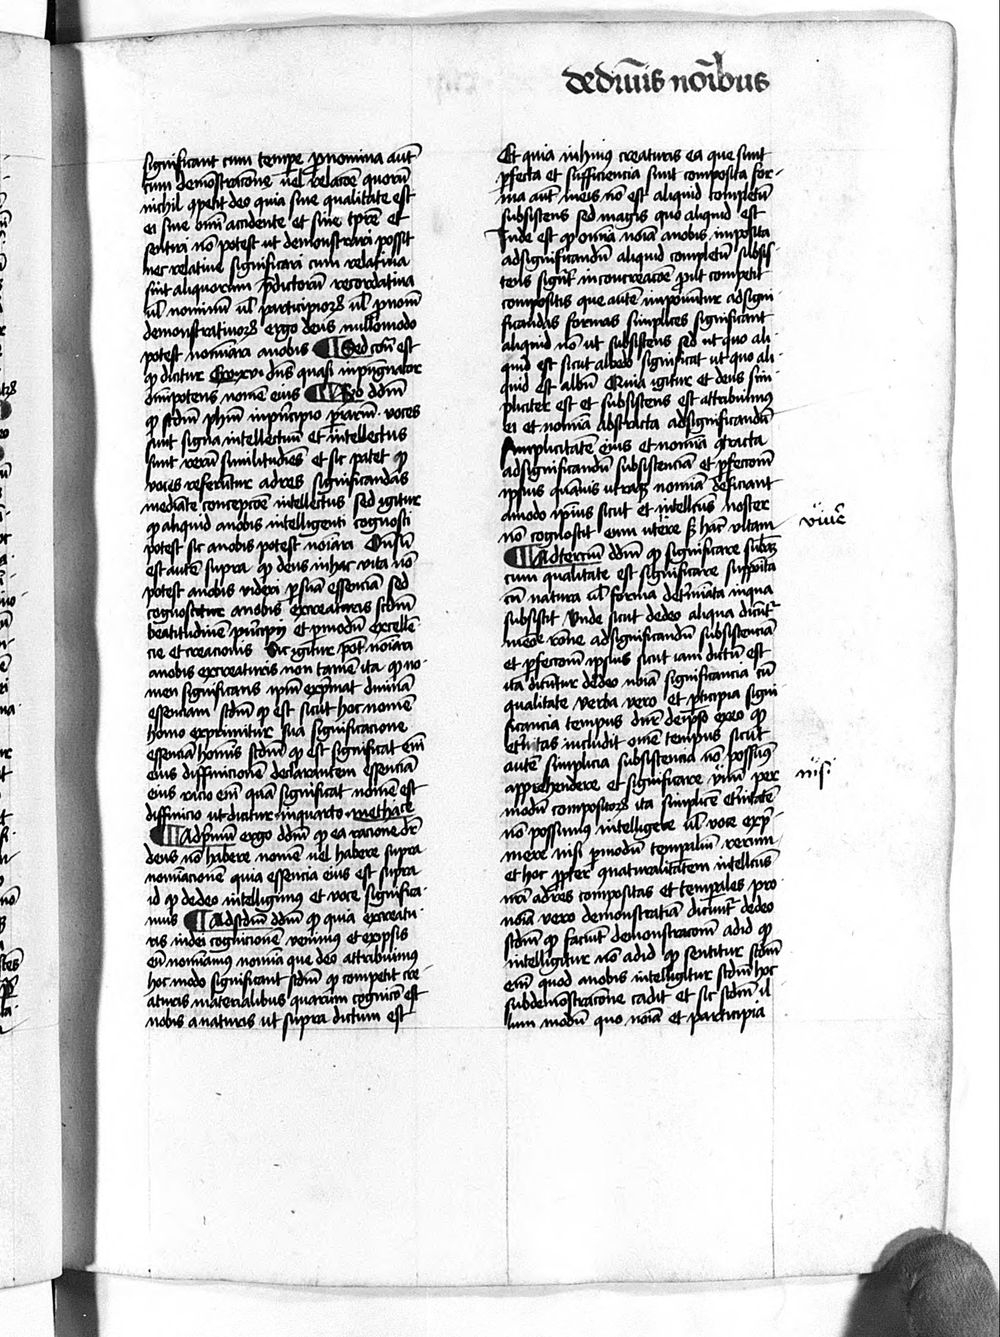 de diuīs noībus
significant cum tempe pronomina aut̄
cum demōstracōne uel relacōe quorū
nichil ꝯpetit deo quia sine qualitate est
et sine omī accidente et sine tp̄re et
sentiri nō potest ut demonstrari possit
nec relatiue significari cum relatiua
sint aliquorum p̄dictorū recordatiua
ul̄ nominū ul̄ participiorꝝ ul̄ pnoīm
demonstratiuorꝝ ergo deus nullomodo
potest nomiāri a nobis Sed cont̄ est
ꝙ dicitur Exo xv dn̄s quasi uir pugnator
om̄ipotens nomē eius Rn̄o dd̄m
ꝙ scd̄m ph̄m in pͥncipio p̄iarm̄ voces
sunt signa intellectuū et intellectus
sunt rerū similitudīes et sic patet ꝙ
voces referūtur ad res significandas
mediāte concepcōe intellectus sed igitur
ꝙ aliquid a nobis intelligenti cognosci
potest sic a nobis potest noīari Onsū
est autē supra ꝙ deus in hac vita nō
potest a nobis videri p suā essenciā sed
cognoscitur a nobis ex creaturis scd̄m
beatitudinē pͥncipij et p modū excellē
cie et creacionis Sic igitur pōt noīari
a nobis ex creaturis non tamē ita ꝙ no
men significans ip̄m exp̄mat diuinā
essenciam scd̄m ꝙ est sicut hoc nomē
homo exprimitur sua significacione
essenciā homīs scd̄m ꝙ est significat em̄
eius diffinicionē declarantem essenciā
eius racio em̄ quā significat nomē est
diffinicio ut dicitur in quarto methace
Ad p̄mū ergo dd̄m ꝙ ea racione dr̄
deus nō habere nomē uel habere supra
nomīacionē quia essencia eius est supra
id ꝙ de deo intelligimus et voce significa
mus Ad scd̄m dd̄m ꝙ quia ex creatu
ris in dei cognicionē venimus et ex ip̄sis
eū nomīamus nomīa que deo attribuimus
hoc modo significant scd̄m ꝙ competit cre
aturis materialibus quarum cognicō est
nobis a naturis ut supra dictum est
Et quia in hiius creaturis ea que sunt
p̄fecta et sufficiencia sunt composita for
ma aut̄ in eis nō est aliquid completū
subsistens sed magis quo aliquid est
Inde est ꝙ omīa noīa a nobis imposita
ad significandū aliquid completū subsis
tens sign̄t in concreacōe put competit
compositis que autē imponūtur ad signi
ficandas formas simplices significant
aliquid nō ut subsistens sed ut quo ali
quid est sicut albedo significat ut quo ali
quid est albū Quia igitur et deus sim
pliciter est et subsistens est attribuimus
ei et nomīa abstracta ad significandū
simplicitatē eius et nomīa ꝯcreta
ad significandū subsistenciā et p̄feccōm
ip̄sius quāuis utraqꝫ nomīa deficiant
a modo ip̄ius sicut et intellcūs noster
nō cognoscit eum ut ē re scd̄m hāc vitam
viuē
Ad terciū dd̄m ꝙ significare sub̄am
cum qualitate est significare supp̄ita
cū natura ul̄ forma det̄mīata in qua
subsistit Unde sicut de deo aliqua dicūt̄
in concr̄eōne ad significandū subsistenciā
et p̄feccōm ip̄sius sicut iam dictū est
ita dicūtur de deo noīa significancia cū
qualitate verba vero et p̄ticipia signi
ficancia tempus dn̄r de ip̄so ex eo ꝙ
et̄nitas includit om̄e tempus sicut
autē simplicia subsistencia nō possum᷒
apprehendere et significare nisi per
nisi
modū compositorꝝ ita simplicē et̄nitatē
nō possimus intelligere ul̄ voce exp̄
mere nisi p modū temporaliū rerum
et hoc ꝓpter ꝯnaturalitatem intellcūs
nr̄i ad res compositas et temp̄ales pro
noīa vero demonstratiā dicūnt̄ de deo
scd̄m ꝙ faciūt demonstracōm ad id ꝙ
intelligitur nō ad id ꝙ sentitur scd̄m
em̄ quod a nobis intelligitur scd̄m hoc
sub demonstracōne cadit et sic scd̄m il
lum modū quo noīa et participia